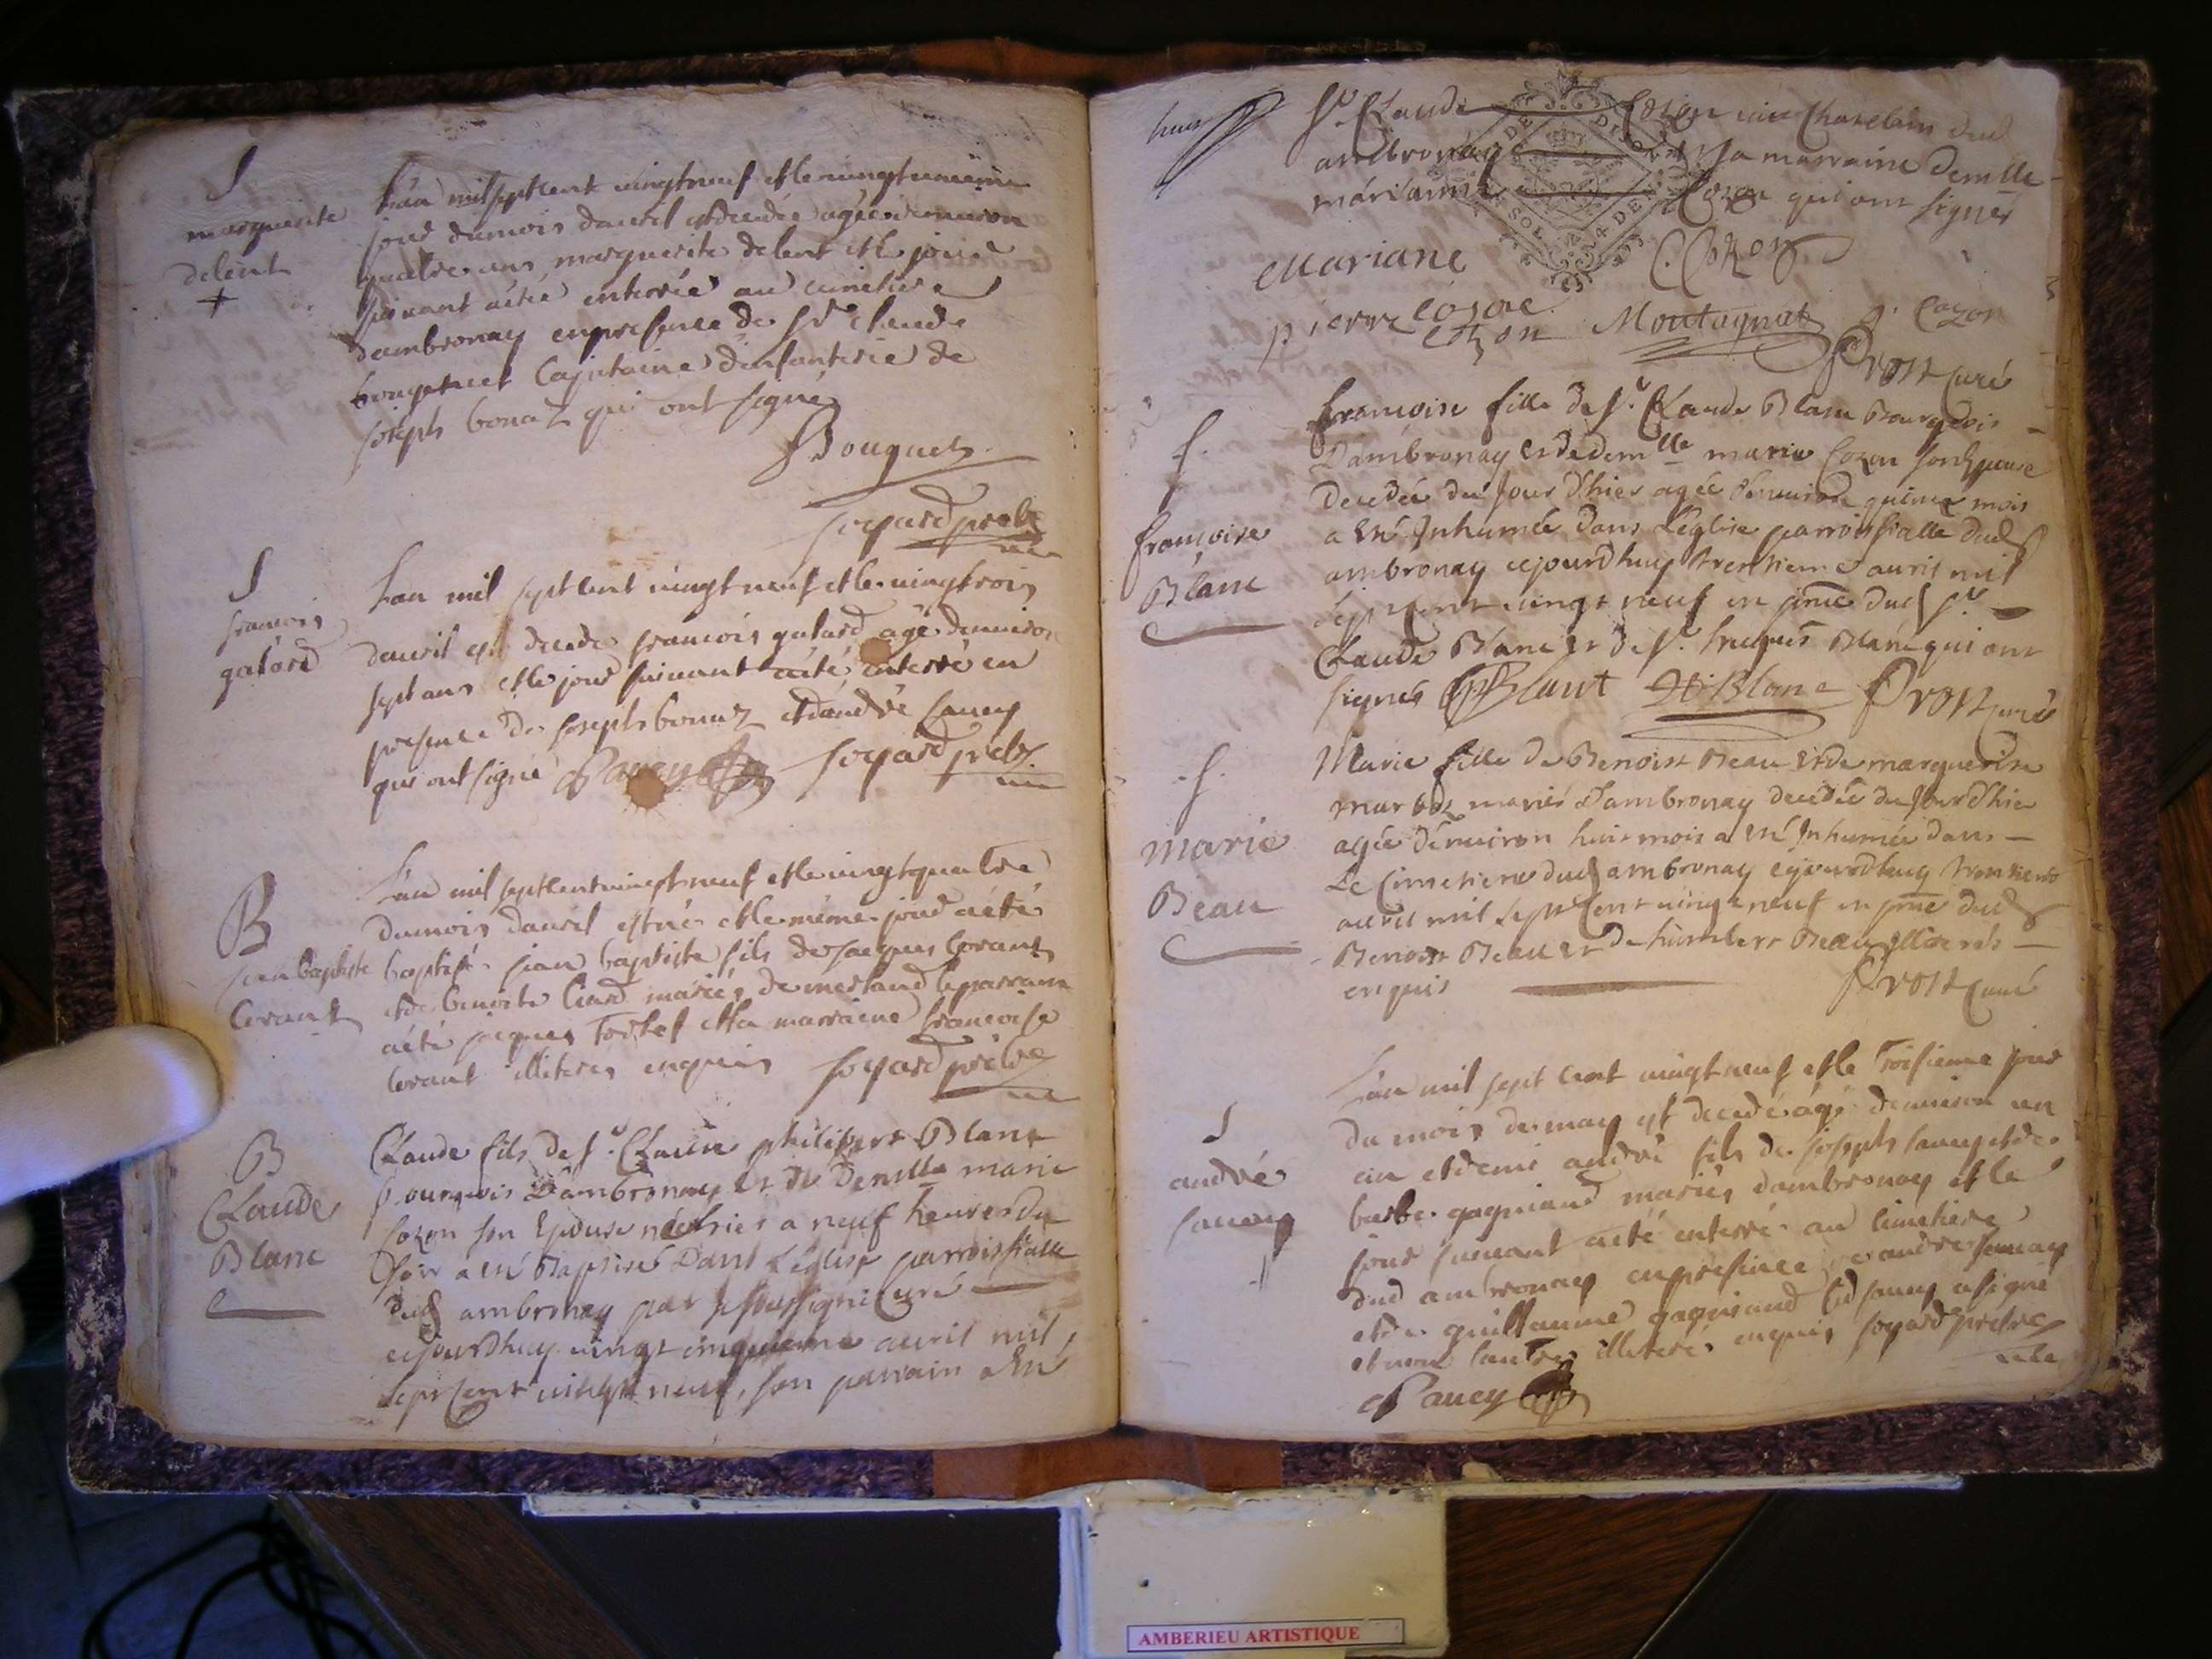 S
marguerite
delent
+
L'an mil sept cent vingt neuf et le vingt unieme
jour du mois d'avril est decedée agée d'environ
quatre ans marguerite delent et le jour
suivant a été enterrée au cimetiere
d'ambronay en presence de Sr claude
bouguet Capitaine d'infanterie de
joseph bonaz qui ont signé
Bouguet
soyard prebt
S
francois
galard
L'an mil sept cent vingt neuf et le vingt trois
d'avril est decedé francois galard agé d'environ
sept ans et le jour suivant a été enterré en
presence de joseph bonaz et d'andré sauey
qui ont signé Pauey soyard prebt
B
jean baptiste
lorant
L'an mil sept cent vingt neuf et le vingt quatre
du mois d'avril est né et le méme jour a été
baptisé jean baptiste fils de jacques lorant
et de benoite liard mariés de merland le parrain
a été jacques et la marraine francoise
lorant illiterés enquis soyard prebt
B
Claude
Blanc
Claude fils de Sr. Claude philibert Blanc
Bourgeois d'ambronay et de demlle marie
Cozon son Epouse né hier a neuf heures du
soir a esté Baptisé dans L'église parroissialle
dud ambronay par je soussigné Curé
cejourdhuy vingt cinquieme avril mil
sept cent vingt neuf, son parrain a esté
Sr. Claude Cozon Chatelain dud
ambronay et sa marraine demlle
marianne Cozon qui ont signés
Mariane C. Cozon
pierre cozon Montagnat Cozon
Prost curé
S.
francoise
Blanc
francoise fille de Sr. Claude Blanc Bourgeois
D'ambronay et de demlle marie Cozon son Epouse
Decedée du Jour d'hier agée d'environ quinze mois
a esté Inhumée dans L'église parroissialle dud
ambronay cejourdhuy trentieme avril mil
sept cent vingt neuf en pnce dud Sr.
Claude Blanc et de Sr. Blanc qui ont
signés Blanc Blanc Prost curé
S.
Marie
Beau
Marie fille de Benoist Beau et de marguerite
mariés d'ambronay decedée du Jour d'hier
agée d'environ huit mois a esté Inhumée dans
Le Cimetiere dud ambronay cejourdhuy trentieme
avril mil sept cent vingt neuf en pnce dud
Benoist Beau et de humbert Beau illiterés
enquis Prost Curé
S
andré
sauey
L'an mil sept cent vingt neuf et le Troisieme jour
du mois de may est decedé agé d'environ un
an et demi andré fils de joseph sauey et de
barbe gagniand mariés d'ambronay et le
jour suivant a été enterré au cimetiere
dud ambronay en presence de andré sauey
et de guillaume gagniand led sauey a signé
et non l'autre illiteré enquis soyard prebtre
Pauey
AMBERIEU ARTISTIQUE